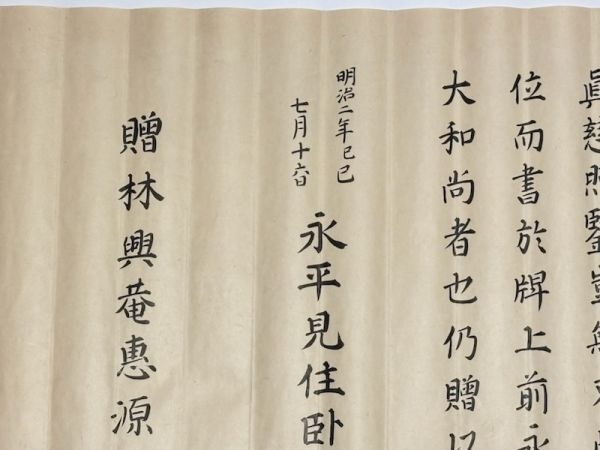 眞慈照鑒豈無
位而書於牌上前永
大和尚者也仍贈
明治二年己巳
七月十六日
永平見住臥
贈林興菴惠源